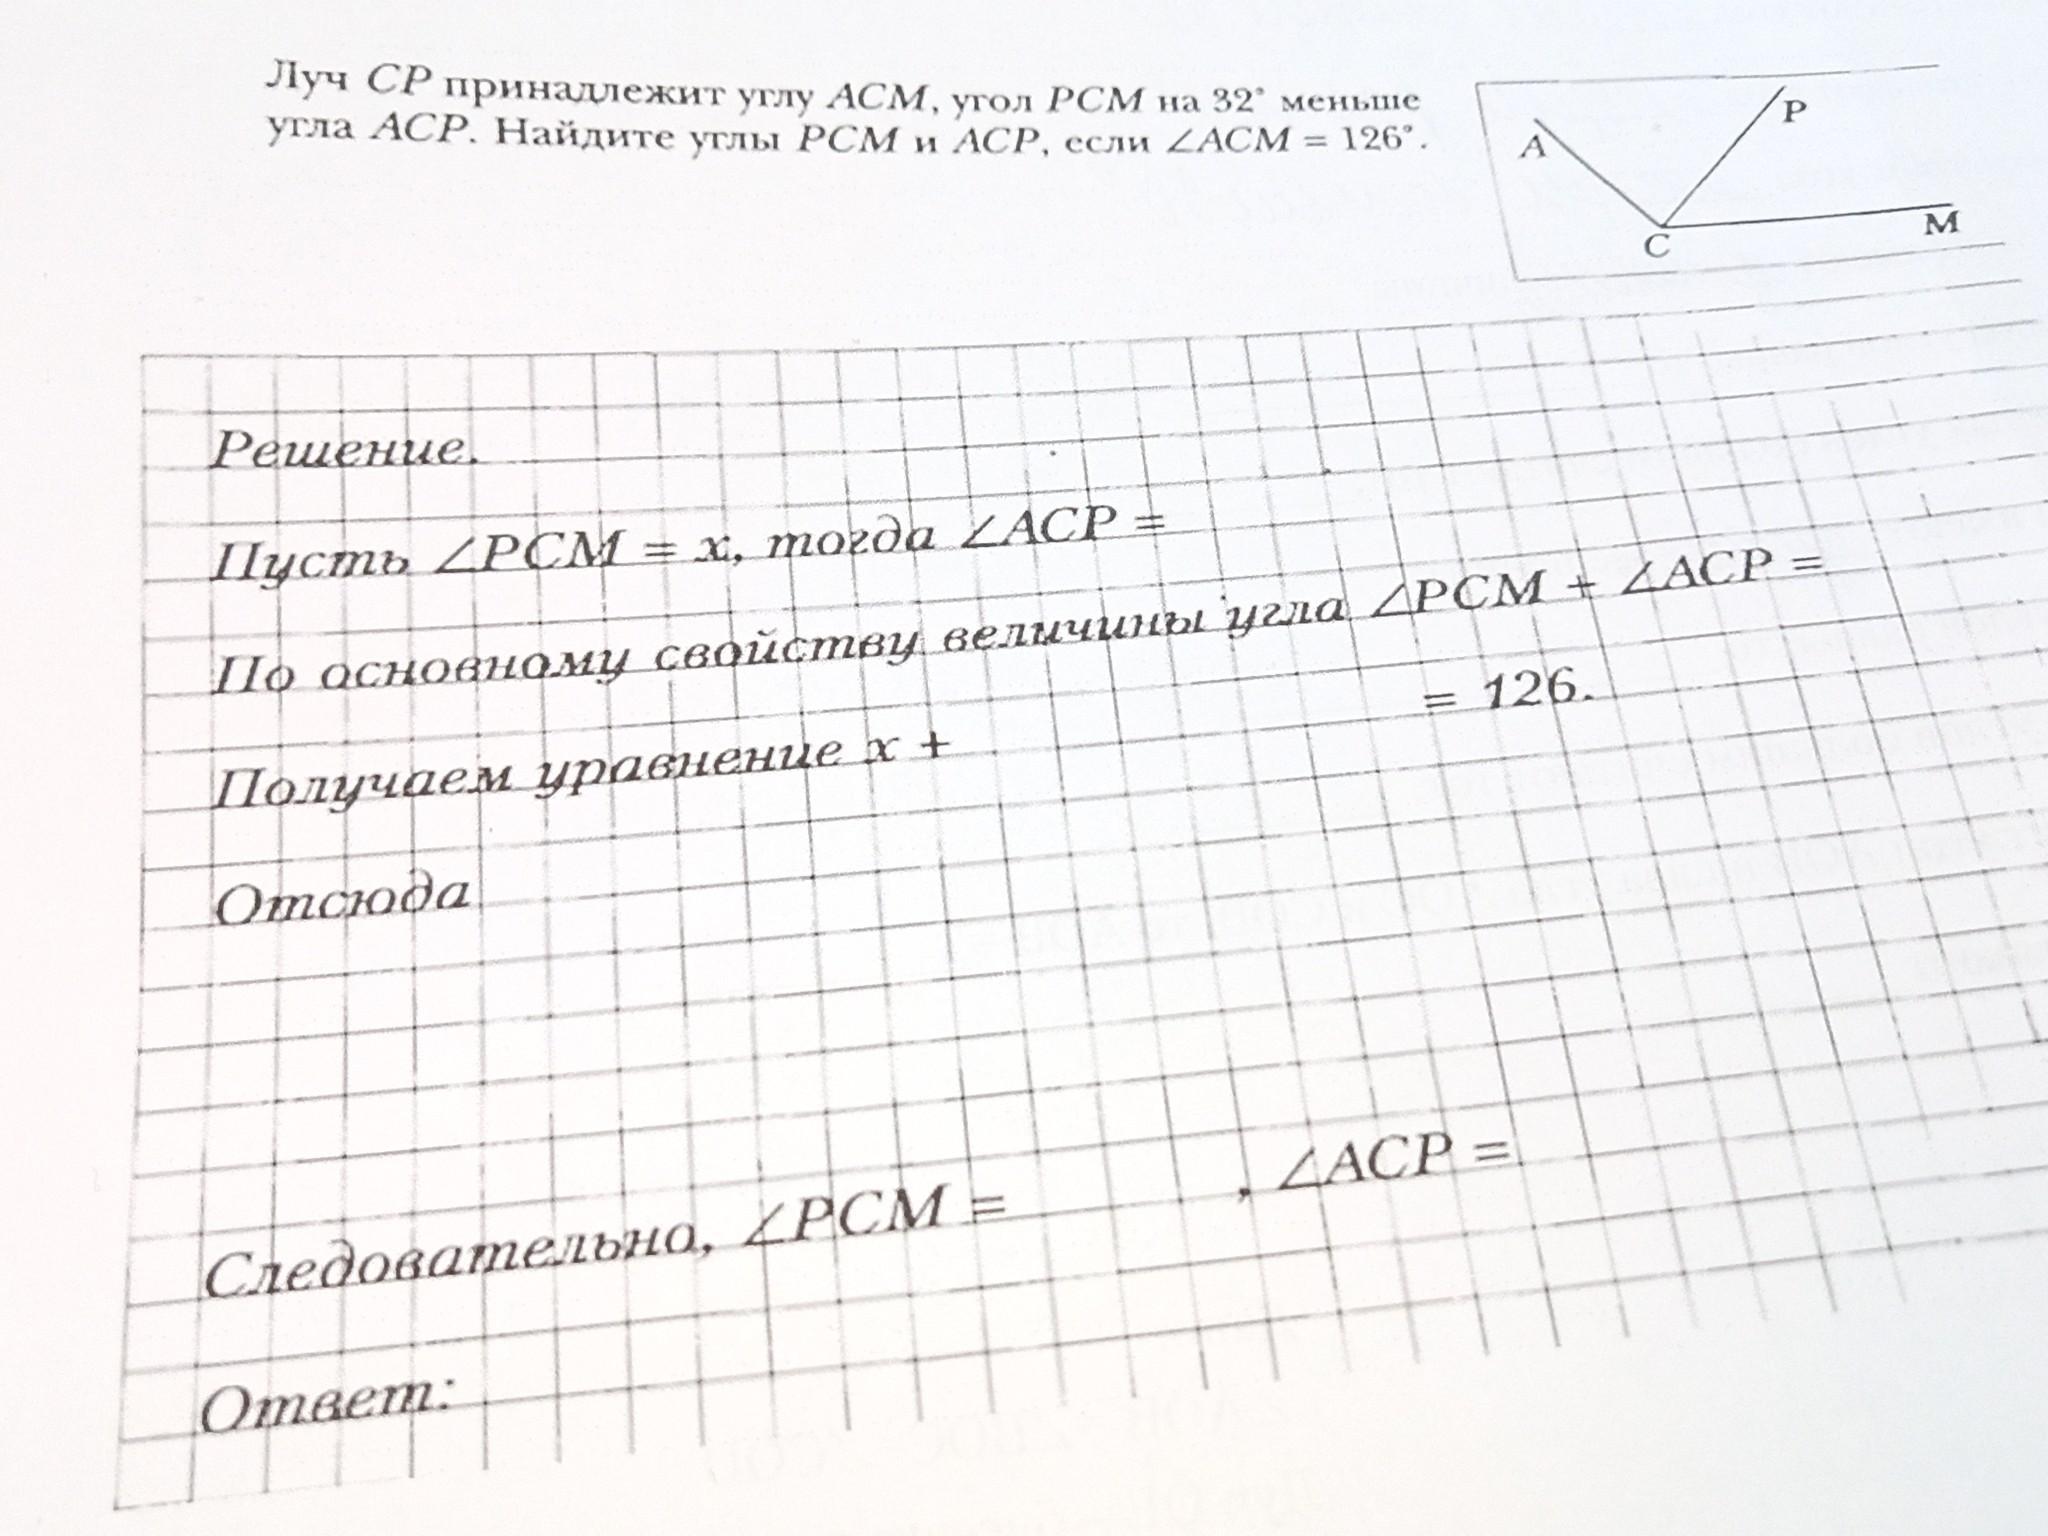 Луч CP принадлежит углу ACM, угол PCM на 32° меньше
угла ACP. Найдите углы PCM и ACP, если ∠ACM = 126°.
A
P
C
M
Решение.
Пусть ∠PCM = x, тогда ∠ACP =
По основному свойству величины угла ∠PCM + ∠ACP =
Получаем уравнение x + = 126.
Отсюда
Следовательно, ∠PCM = , ∠ACP =
Ответ: